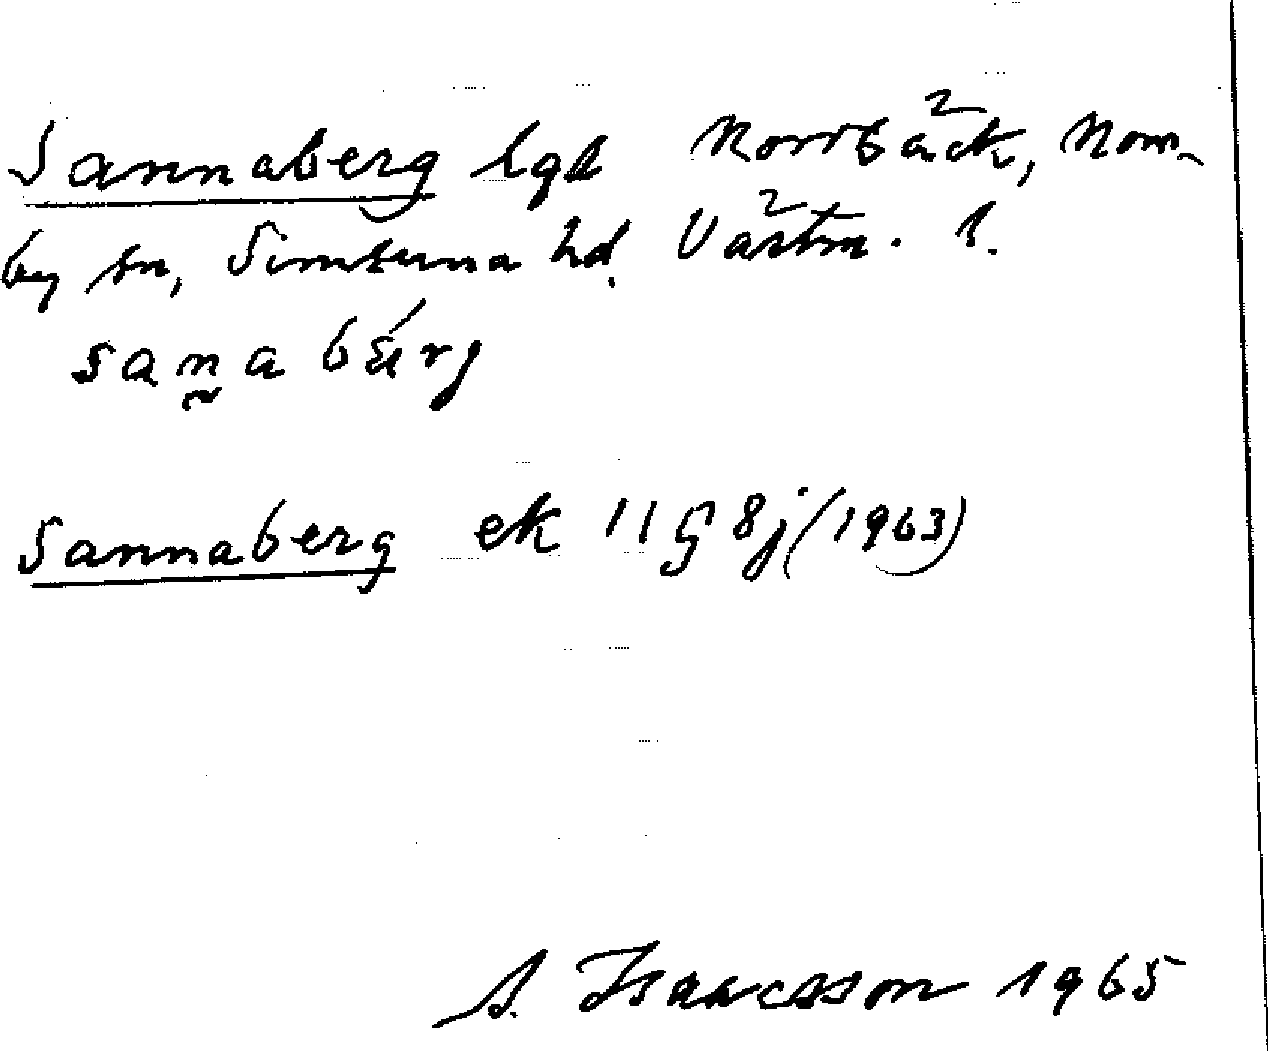 Sannaberg lgh Norrbäck, Nora-
by sn, Simtuna hd. Västm. l.
sana bärj
Sannaberg ek 11G 8j (1963)
S. Isaacsson 1965